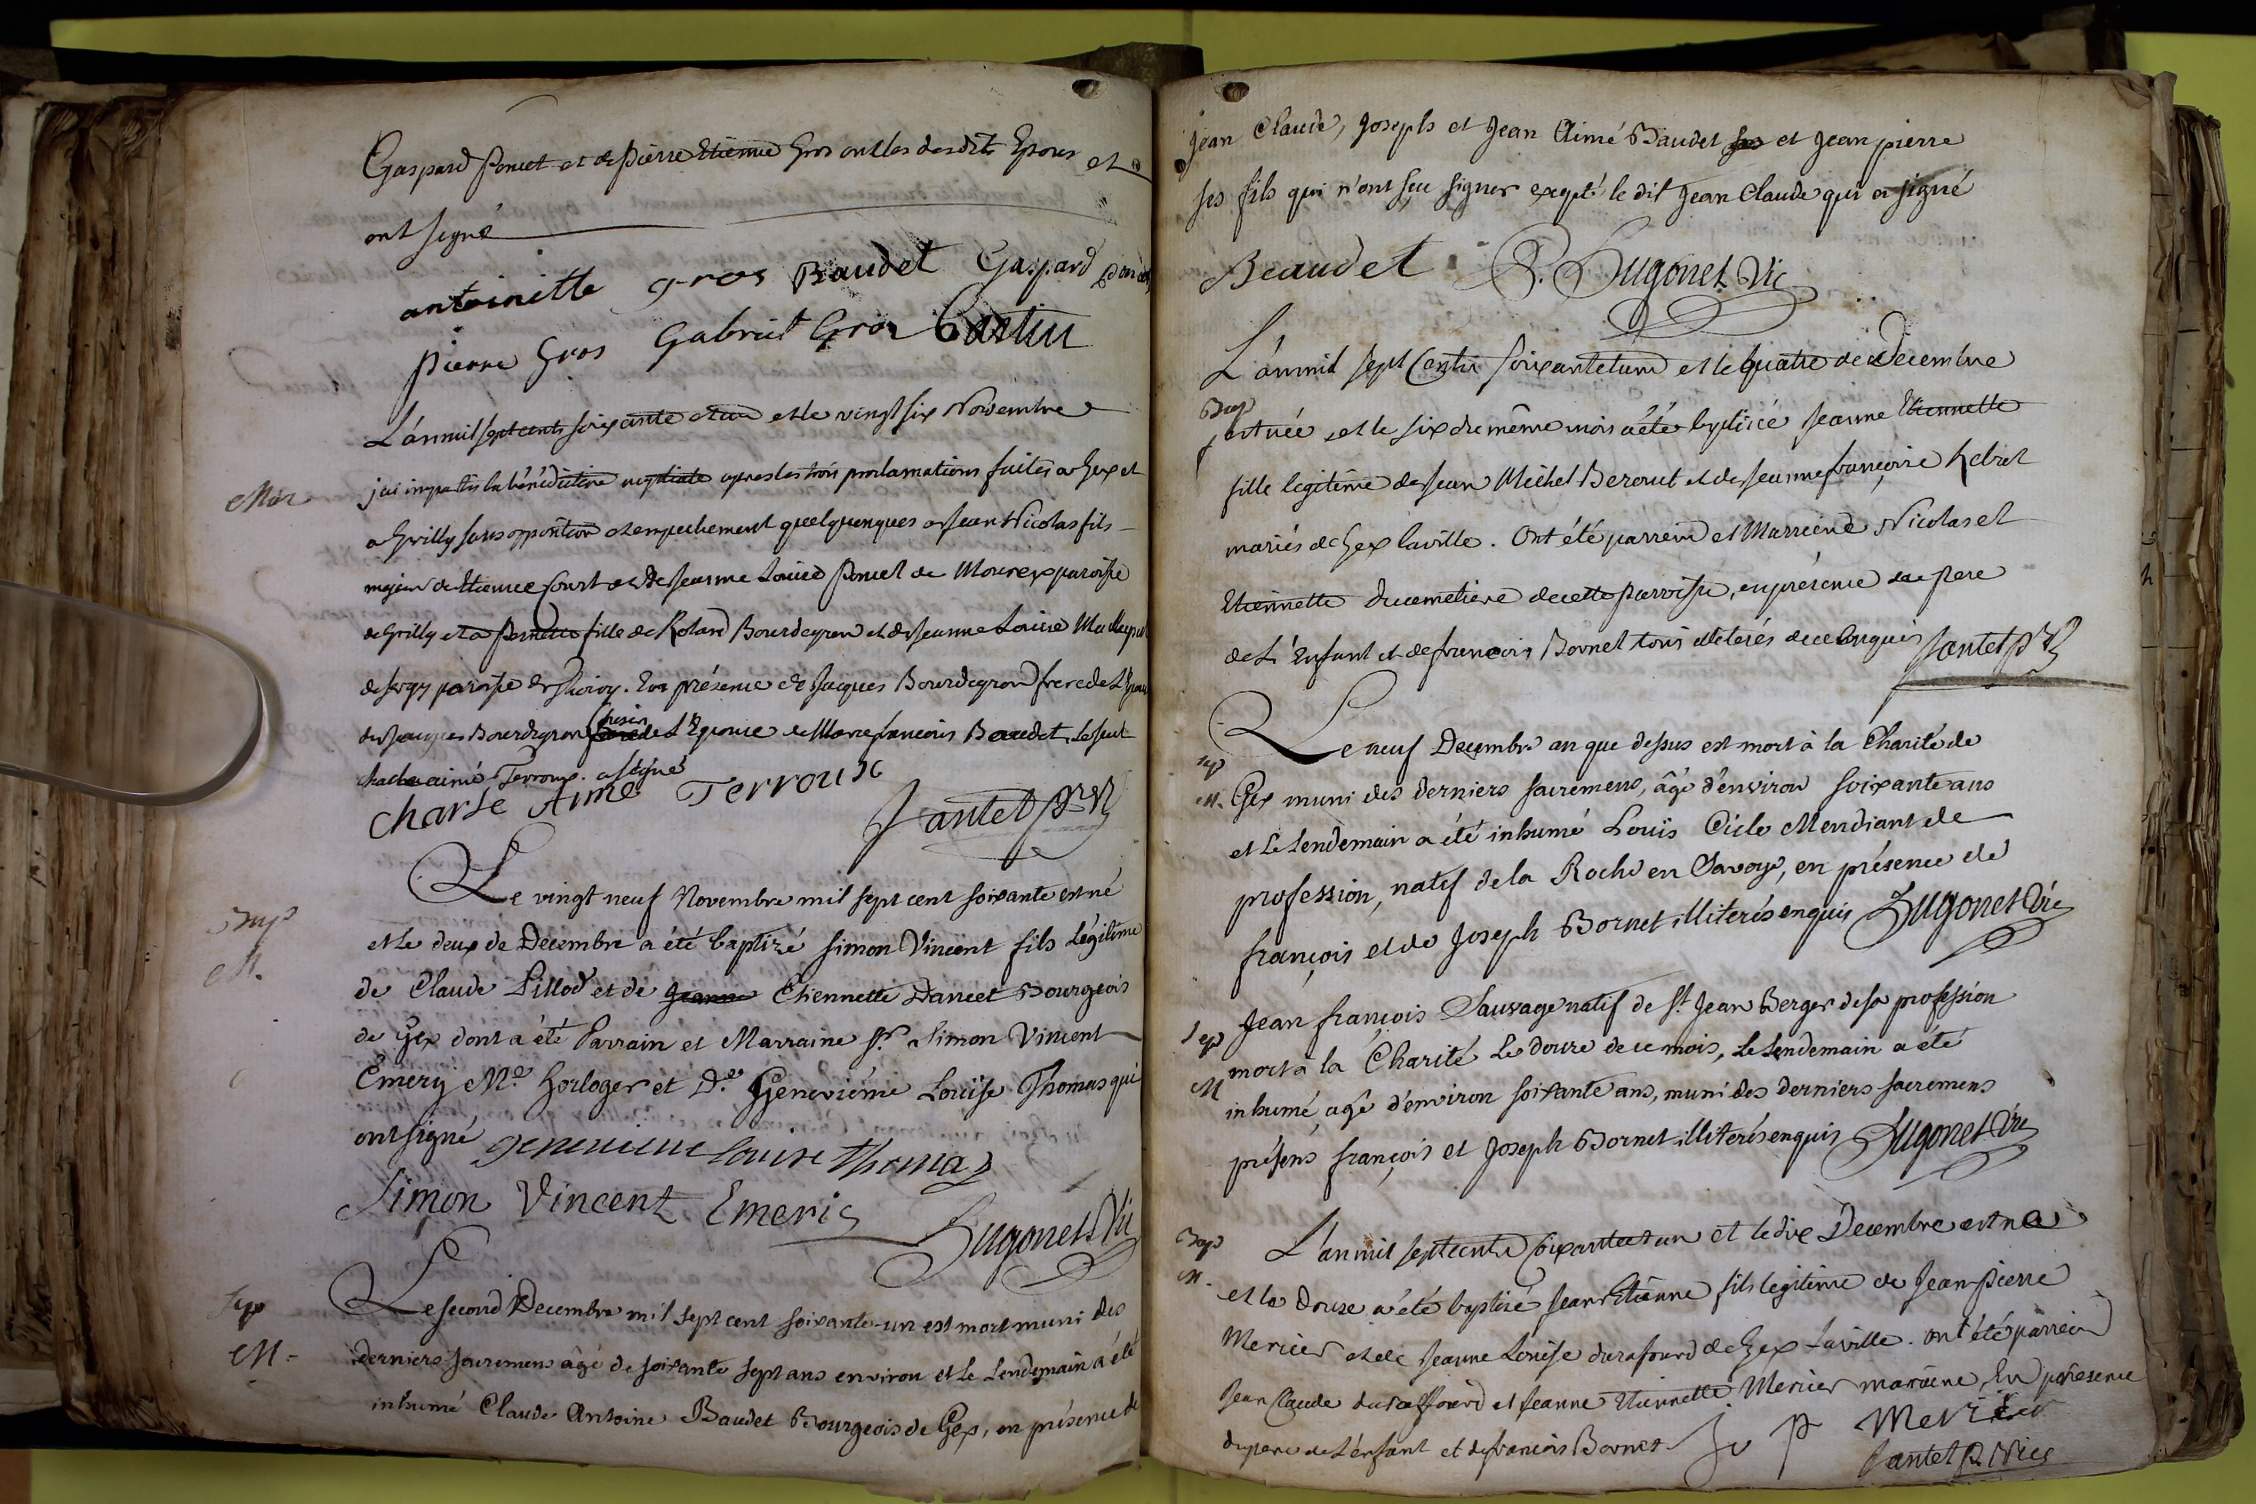 Gaspard Poncet et de Pierre Etienne Gros oncles desdits Epoux et
ont signé
antoinette gros Baudet Gaspard Poncet
pierre Gros Gabriel Gros Castin
L'an mil sept cents soixante et un et le vingt six Novembre
Mar
j'ai imparti la bénédiction nuptiale apres les trois proclamations faites a Gex et
a Grilly sans opposition et empechement quelquonques a Jean Nicolas fils
majeur de Etienne Court et de Jeanne Louise Poncet de Mourex paroisse
de Grilly et a Pernette fille de Roland Bourdegron et de Jeanne Louise
de Sergy paroisse de Thoiry. En présence de Jacques Bourdegron frere de L'Epouse
de Jacques Bourdegron Cousin de L'Epouse de Marc francois Baudet. Le seul
charle aimé Terroux a signé
charle Aime Terroux
Jantet ptre
Bap
M.
Le vingt neuf Novembre mil sept cent soixante est né
et le deux de Decembre a été baptizé Simon Vincent fils Légitime
de Claude Pillod et de Jeanne Etiennette Dancet Bourgeois
de Gex dont a été Parrain et Marraine Sr. Simon Vincent
Emery Me. horloger et De. Genevieme Louise Thomas qui
ont signé genevieve louise thomas
Simon Vincent Emeric
Hugonet Vic
Sep
M.
Le second Decembre mil sept cent soixante-un est mort muni des
derniers sacremens âgé de soixante sept ans environ et le Lendemain a été
inhumé Claude Antoine Baudet Bourgeois de Gex, en présence de
Jean Claude, Joseph et Jean Aimé Baudet ses et Jean pierre
ses fils qui n'ont sçu signer excepté le dit Jean Claude qui a signé
Beaudet P. Hugonet Vic
L'an mil sept Cents soixante et un et le quatre de Decembre
Bap
est née et le six du même mois a été baptisée Jeanne Etiennette
fille legitime de Jean Michel Beroud et de Jeanne françoise
mariés de Gex la ville. Ont été parrein et Marreine Nicolas et
Etiennette Ducemetiere de cette parroisse, en présence du pere
de L'Enfant et de francois Bornet tous illeterés de ce Enquis Jantet ptre
Sep
M.
Le neuf Decembre an que dessus est mort à la Charité de
Gex muni des derniers sacremens, âgé d'environ soixante ans
et le Lendemain a été inhumé Louïs Cicle Mendiant de
profession, natif de la Roche en Savoye, en présence de
françois et de Joseph Bornet illiterés enquis Hugonet Vic
Sep
M
Jean françois Sauvage natif de St. Jean Berger de sa profession
mort à la Charité Le douze de ce mois, Le Lendemain a été
inhumé, agé d'environ soixante ans, muni des derniers sacremens
présens françois et Joseph Bornet illiterés enquis Hugonet Vic
Bap
M.
L'an mil sept cents soixante et un et le dix Decembre est né
et le douze a été baptisé Jean Etienne fils legitime de Jean-pierre
Mercier et de Jeanne Louise durafourd de Gex la ville. ont été parrein
Jean Claude duraffourd et Jeanne Etiennette Mercier mareine, En présence
du pere de L'enfant et de francois Bornet J P Mercier
Jantet p. Vic